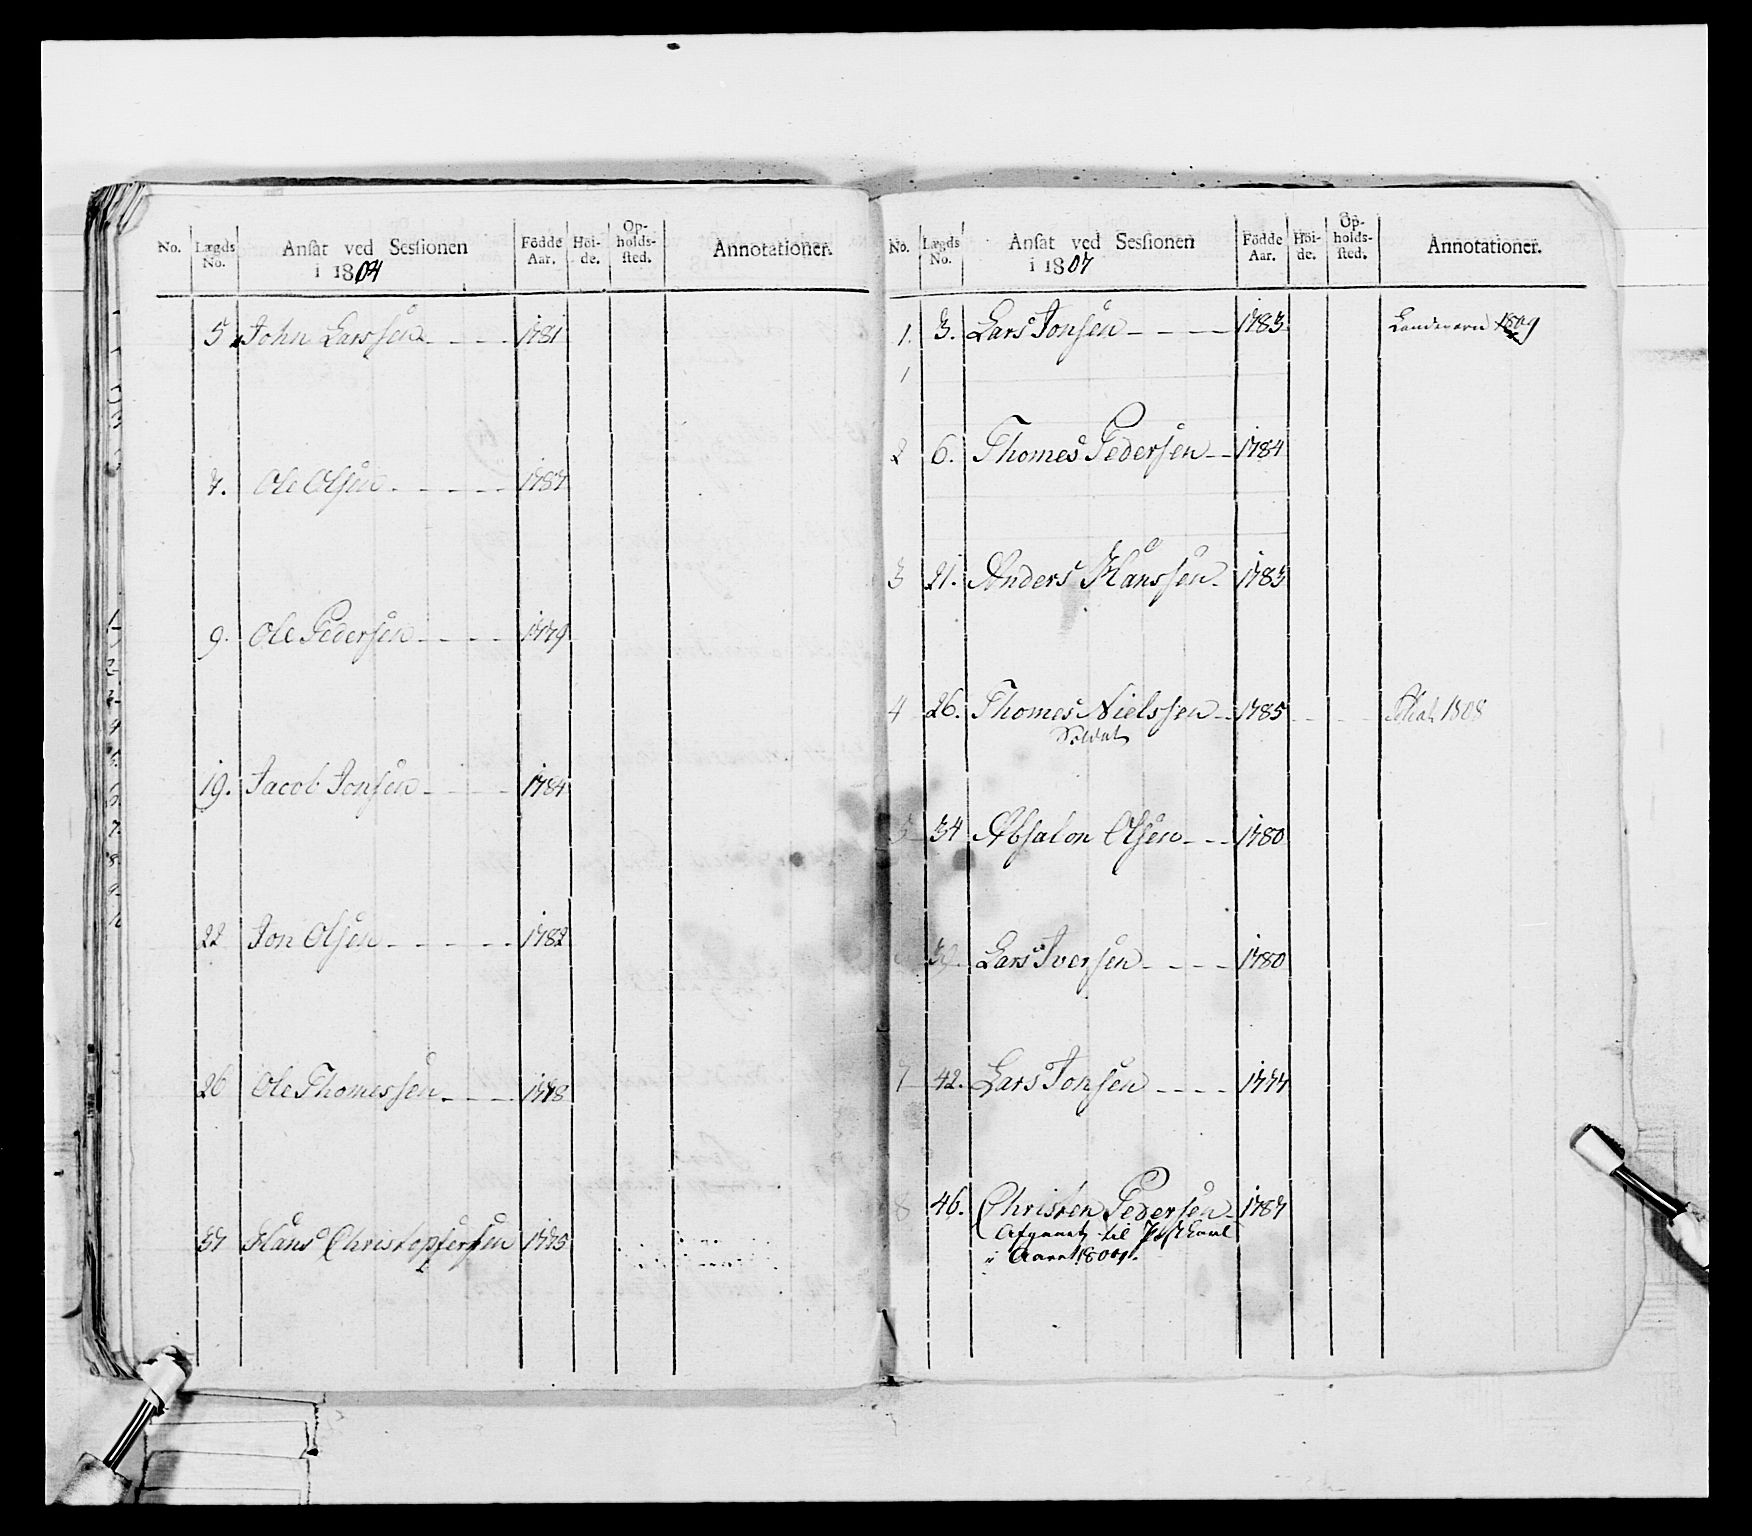 No. Lægds No. Ansat ved Sessionen i 1804 Födde Aar. Höi-de. Op-holds-sted. Annotationer.
5 John Larssen 1781
7. Ole Olsen 1787
9. Ole Pedersen 1779
19. Jacob Jonsen 1784
22 Jon Olsen 1782
26 Ole Thomessen 1778
37 Hans Christophersen 1775
No. Lægds No. Ansat ved Sessionen i 1807 Födde Aar. Höi-de. Op-holds-sted. Annotationer.
1. 3. Lars Jonsen 1783 Landevern 1809
1
2 6. Thomes Pedersen 1784
3 21. Anders Hanssen 1783
4 26. Thomes Nielssen 1785 1808
Soldat
5 34 Absalon Olsen 1780
39. Lars Iversen 1780
7 42. Lars Jonsen 1777
8 46. Christen Pedersen 1787
Afgaaet til
i Aaret